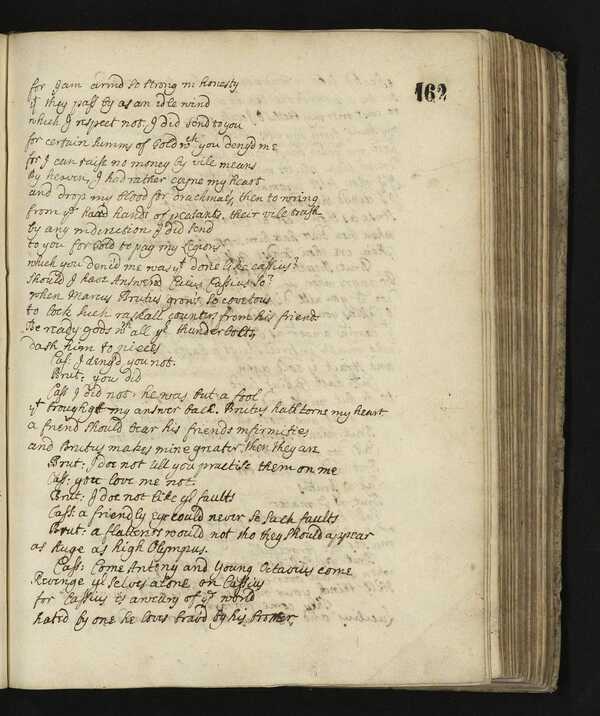 162
for I am arm'd so strong in honesty
yt they pass by as an idle wind
which I respect not, I did send to you
for certain summs of Gold wch you deny'd me
for I can raise no money by vile means
by heaven, I had rather coyne my heart
and drop my blood for drachma's, then to wring
from ye hard hands of peasants, their vile trash
by any indirection I did send
to you for Gold to pay my Legions
which you deni'd me was yt done like Cassius?
should I have Answerd Caius Cassius so?
when Marcus Brutus grows so covetous
to lock such rascall counters from his friends
Be ready gods wth all yr thunderbolts
dash him to pieces
Cas: I deny'd you not.
Brut: you did
Cass I did not: he was but a fool
yt brought my answer back. Brutus hath torne my heart
a friend should bear his friends infirmities
and Brutus makes mine greater, then they are
Brut: I doe not till you practise them on me
Cass: you love me not.
Brut: I doe not like yr faults
Cass: a friendly eye could never se such faults
Brut: a flatterers would not tho they should appear
as huge as high Olympus.
Cass: Come Antony and Young Octavius come
Revenge yr selves alone on Cassius
for Cassius is aweary of ye world
hated by one he loves brav'd by his brother